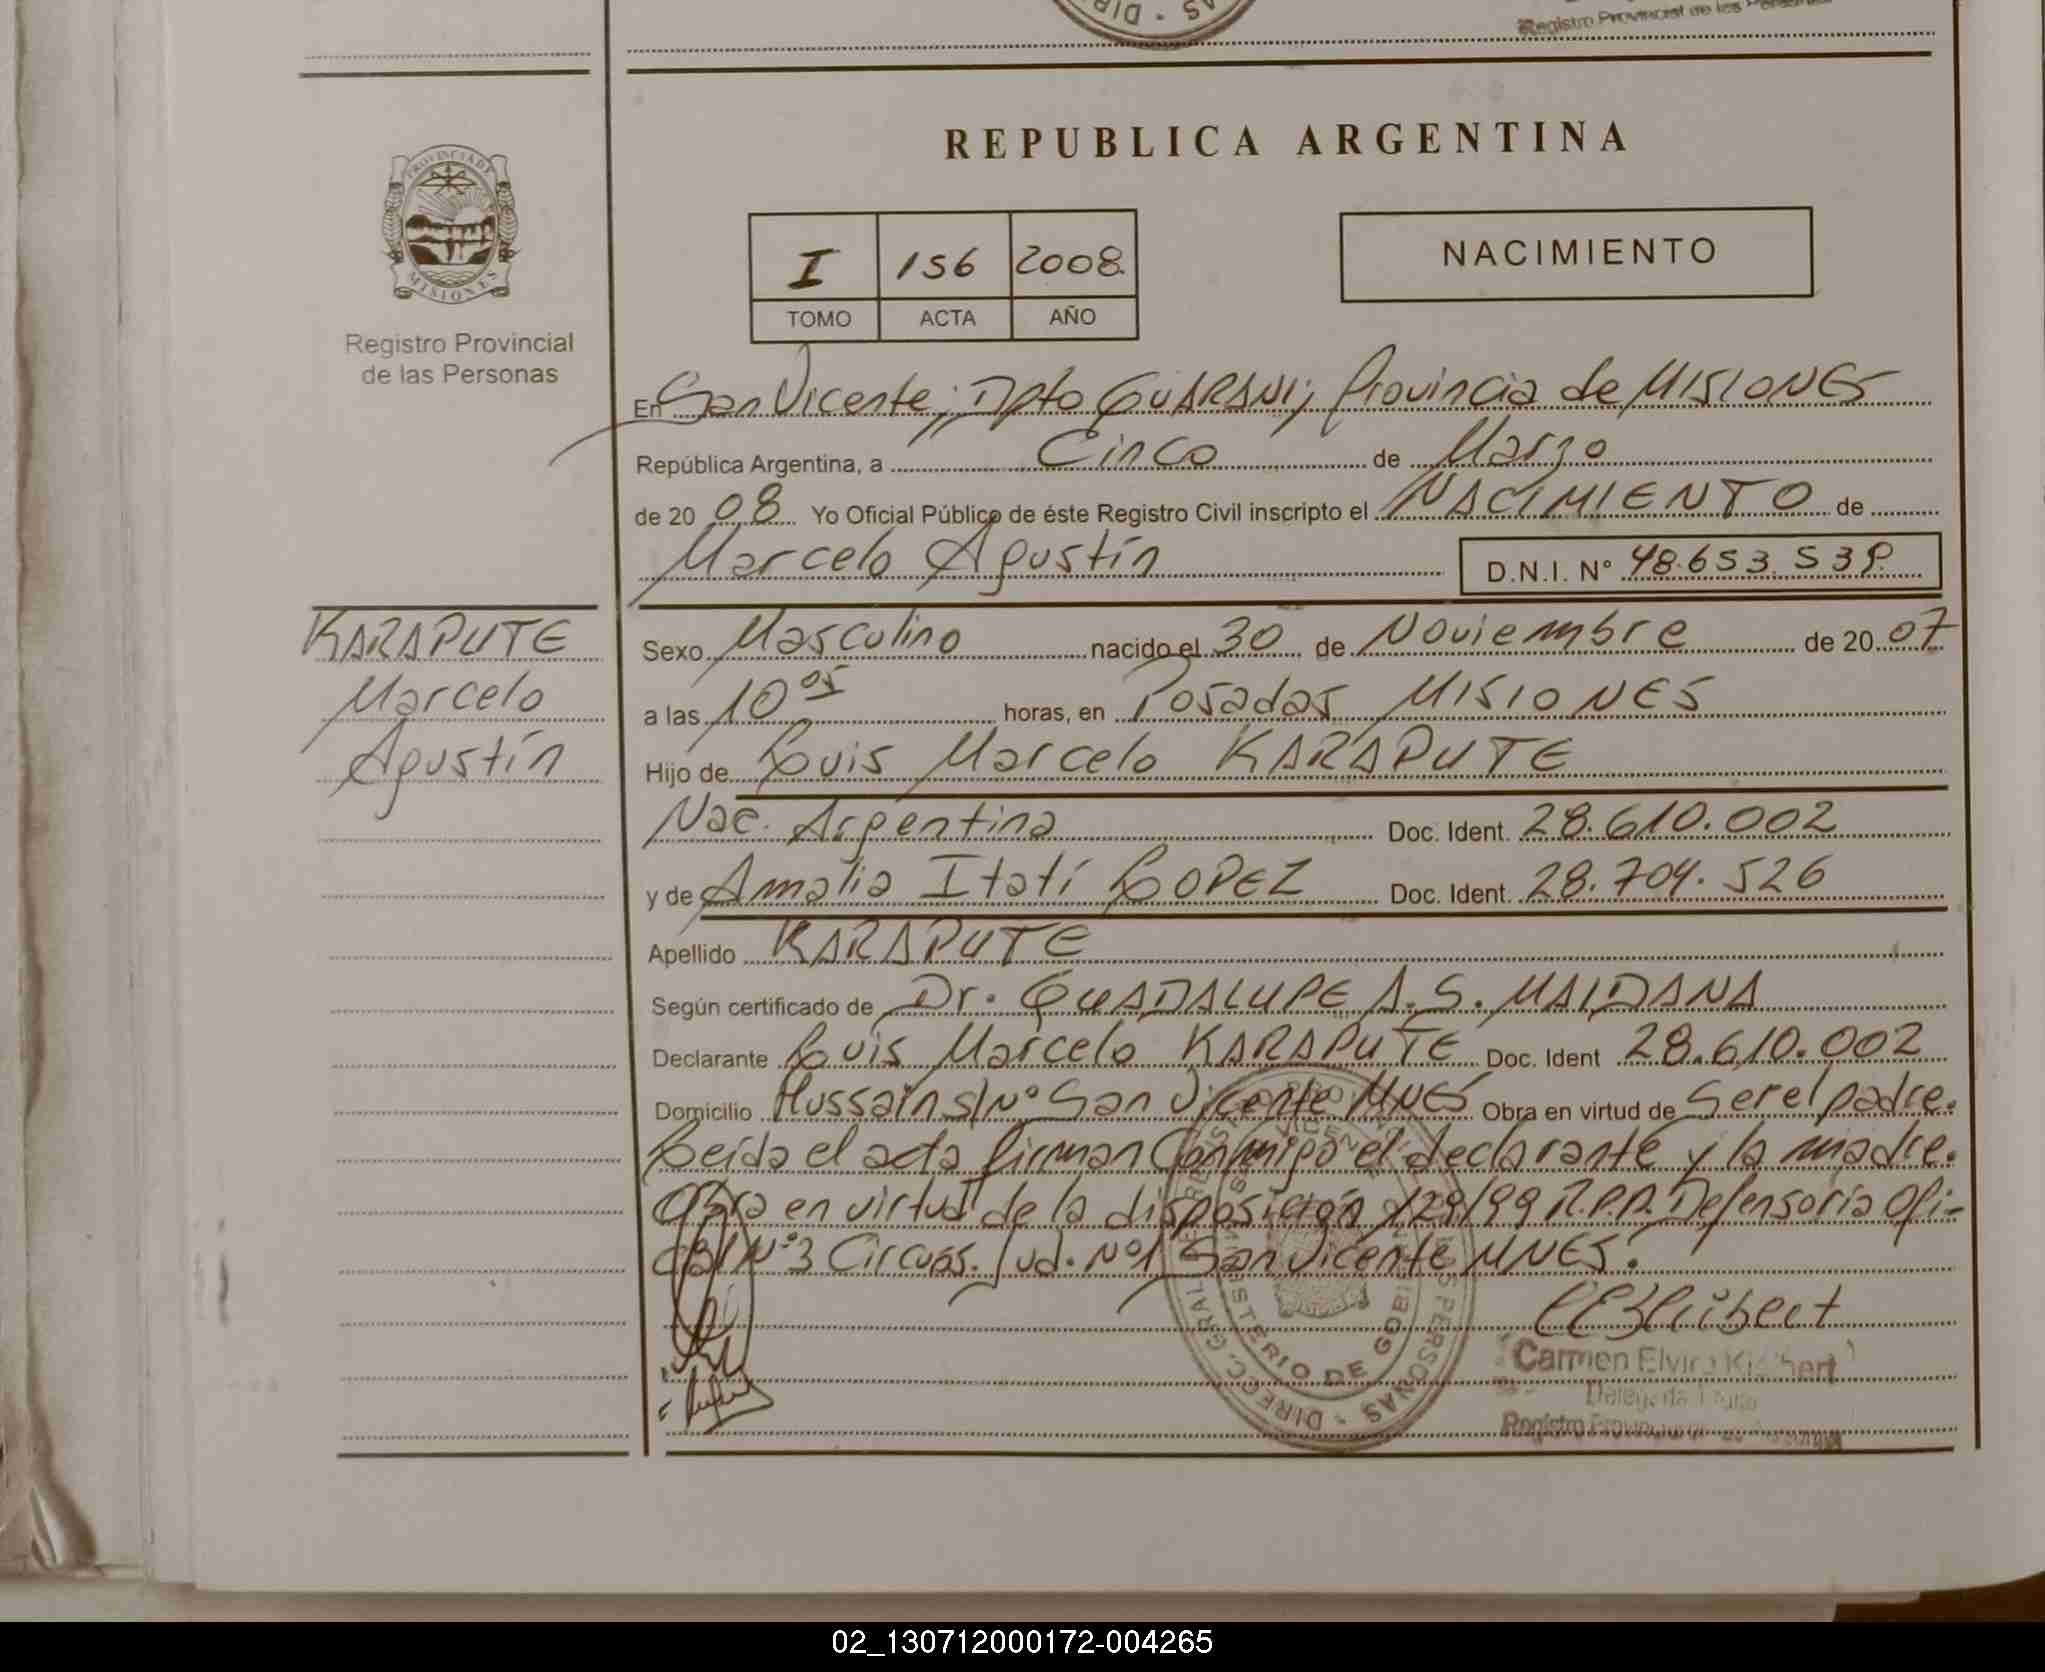 DIRE
AS
Registro Provincial de las Personas
REPUBLICA ARGENTINA
PROVINCIA DE
MISIONES
Registro Provincial
de las Personas
I 156 2008
TOMO ACTA AÑO
NACIMIENTO
En San Vicente; Dpto GUARANI; Provincia de MISIONES
República Argentina, a Cinco de Marzo
de 20 08 Yo Oficial Público de éste Registro Civil inscripto el NACIMIENTO de
Marcelo Agustín D.N.I. Nº 48.653.539.
KARAPUTE
Marcelo
Agustín
Sexo Masculino nacido el 30 de Noviembre de 20 07
a las 10 05 horas, en Posadas MISIONES
Hijo de Luis Marcelo KARAPUTE
Nac. Argentina Doc. Ident. 28.610.002
y de Amalia Itatí LOPEZ Doc. Ident. 28.704.526
Apellido KARAPUTE
Según certificado de Dr. GUADALUPE A. S. MAIDANA
Declarante Luis Marcelo KARAPUTE Doc. Ident 28.610.002
Domicilio Hussain S/Nº San Vicente MNES Obra en virtud de Ser el padre.
Leída el acta firman Conmigo el declarante y la madre.
Obra en virtud de la disposición 129/99 R.P.P. Defensoría Ofi-
cial Nº3 Circuns. Jud. Nº1 San Vicente MNES.
DIRECC. GRAL. PERSONAS
MINISTERIO DE GOB
Carmen Elvira
Registro
02_130712000172-004265